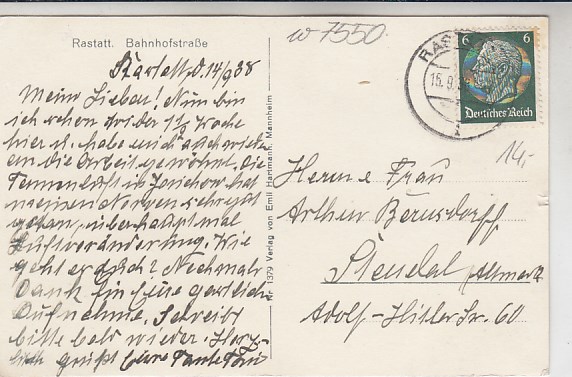 Rastatt. Bahnhofstraße
w 7550.
Rastatt, d. 14/9 38
Meine Lieben! Nun bin
ich schon wieder 1½ Woche
hier u. habe mich auch wieder
an die Arbeit gewöhnt. Die
Tannenluft in Jerichow hat
meinen Nerven sehr gut
getan, überhaupt mal
Luftveränderung. Wie
geht es euch? Nochmals
Dank für Eure gastliche
Aufnahme. Schreibt
bitte bald wieder. Herz-
lich grüßt Eure Tante
Nr. 1379 Verlag von Emil Hartmann, Mannheim
RAST
15.9.
6 6
Deutsches Reich
14,-
Herrn u. Frau
Arthur Bernsdorff
Stendal (Altmark
Adolf-Hitler Str. 60